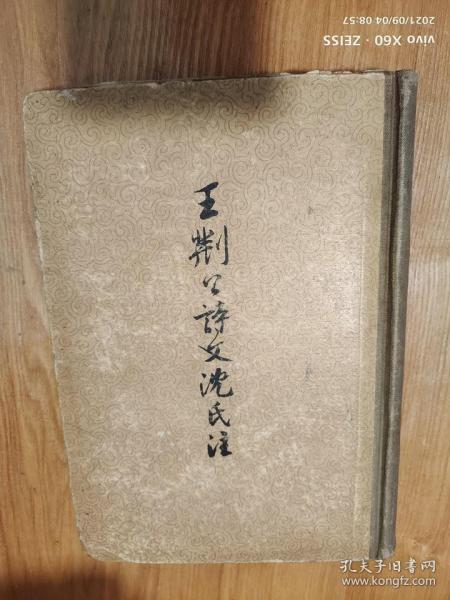 vivo X60 · ZEISS
2021/09/04 08:57
王荆公詩文沈氏注
孔夫子旧书网
www.kongfz.com